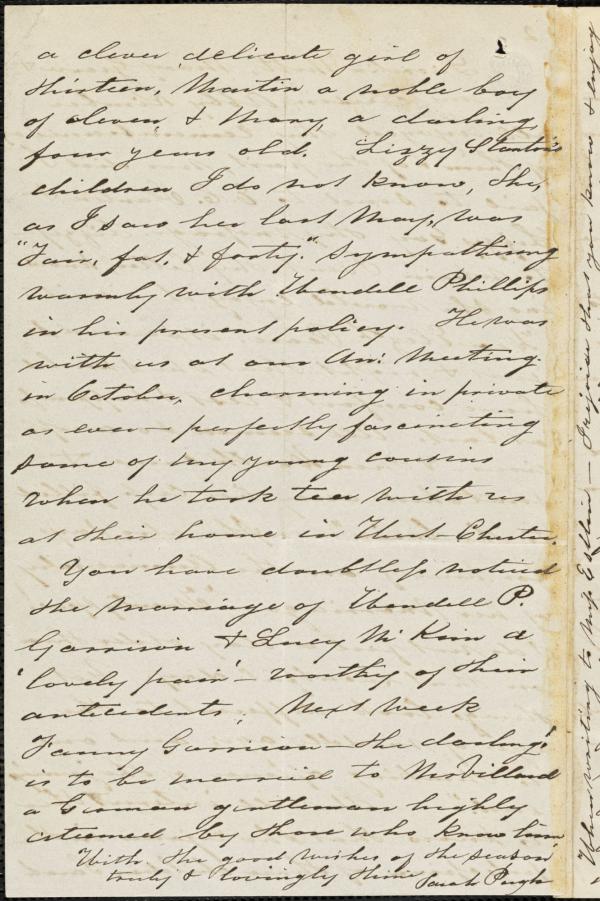 a clever delicate girl of
thirteen, Martin a noble boy
of eleven & Mary, a darling,
four years old. Lizzy Stanton's
children I do not know, She,
as I saw her last May, was
"Fair, fat, & forty." Sympathising
warmly with Wendell Phillips
in his present policy. He was
with us at our An: Meeting
in October, charming in private
as ever — perfectly fascinating
some of my young cousins
when he took tea with us
at their home in West-Chester.
You have doubtless noticed
the marriage of Wendell P.
Garrison & Lucy McKim a
'lovely pair' — worthy of their
antecedents. Next week
Fanny Garrison — the darling!
is to be married to Mr Villard
a German gentleman highly
esteemed by those who know him
With the good wishes of the season
truly & lovingly thine Sarah Pugh
When writing to Miss Estlin — I rejoice that you know & enjoy